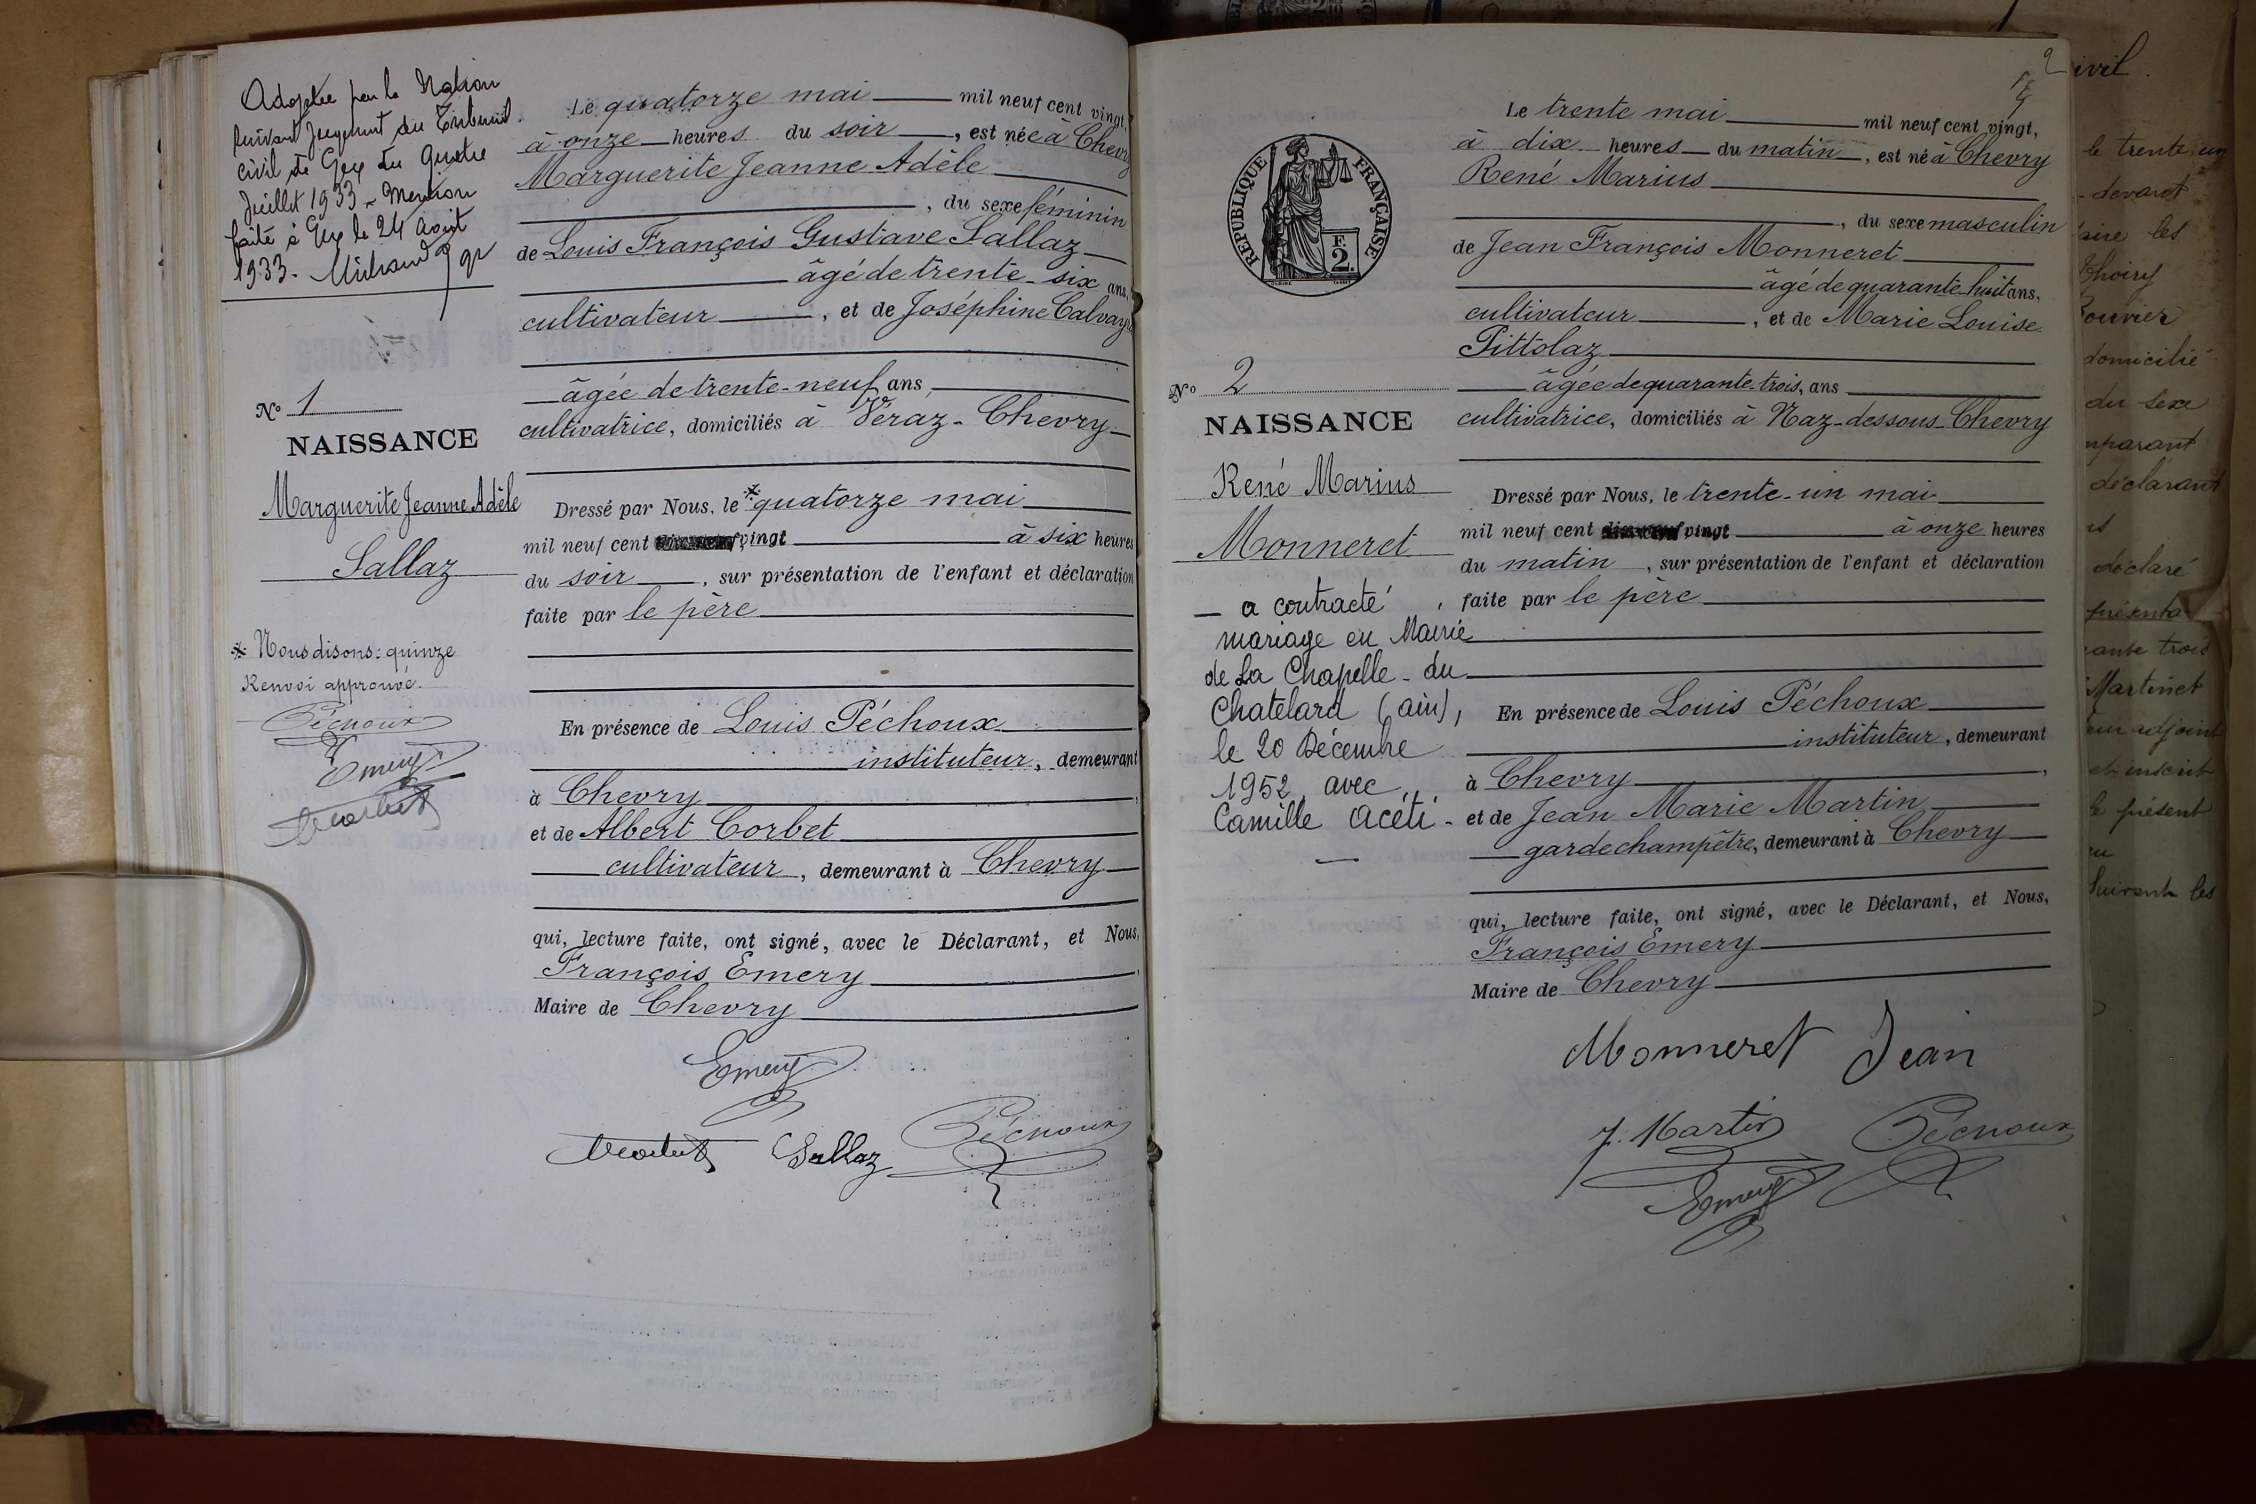 Adoptée par la Nation
suivant jugement du Tribunal
civil de Gex du quatre
Juillet 1933 - Mention
faite à Gex le 24 août
1933.
Le quatorze mai mil neuf cent vingt,
à onze heures du soir, est née à Chevry
Marguerite Jeanne Adèle
, du sexe féminin
de Louis François Gustave Sallaz
âgé de trente-six ans,
cultivateur, et de Joséphine
âgée de trente-neuf ans,
cultivatrice, domiciliés à Véraz-Chevry
No 1
NAISSANCE
Marguerite Jeanne Adèle
Sallaz
* Nous disons: quinze
Renvoi approuvé.
Péchoux
Emery
Dressé par Nous, le * quatorze mai
mil neuf cent vingt à six heures
du soir, sur présentation de l'enfant et déclaration
faite par le père
En présence de Louis Péchoux
instituteur, demeurant
à Chevry,
et de Albert Corbet
cultivateur, demeurant à Chevry
qui, lecture faite, ont signé, avec le Déclarant, et Nous,
François Emery,
Maire de Chevry
Emery
Sallaz Péchoux
2
RÉPUBLIQUE FRANÇAISE
F.
2
Le trente mai mil neuf cent vingt,
à dix heures du matin, est né à Chevry
René Marius
, du sexe masculin
de Jean François Monneret
âgé de quarante huit ans,
cultivateur, et de Marie Louise
Pittolaz
âgée de quarante-trois, ans
cultivatrice, domiciliés à Naz-dessous-Chevry
No 2
NAISSANCE
René Marius
Monneret
— a contracté
mariage en Mairie
de La Chapelle-du
Chatelard (ain),
le 20 Décembre
1952 avec
Camille Acéti -
Dressé par Nous, le trente-un mai
mil neuf cent vingt à onze heures
du matin, sur présentation de l'enfant et déclaration
faite par le père
En présence de Louis Péchoux
instituteur, demeurant
à Chevry,
et de Jean Marie Martin
garde champêtre, demeurant à Chevry
qui, lecture faite, ont signé, avec le Déclarant, et Nous,
François Emery
Maire de Chevry
Monneret Jean
J. Martin Péchoux
Emery
ivil.
le trente un
devant
aire les
Thoiry
Bouvier
domicilié
du sexe
mparant
déclarant
déclaré
présenta
ante trois
Martinet
eur adjoint
et inscrit
le présent
suivant les